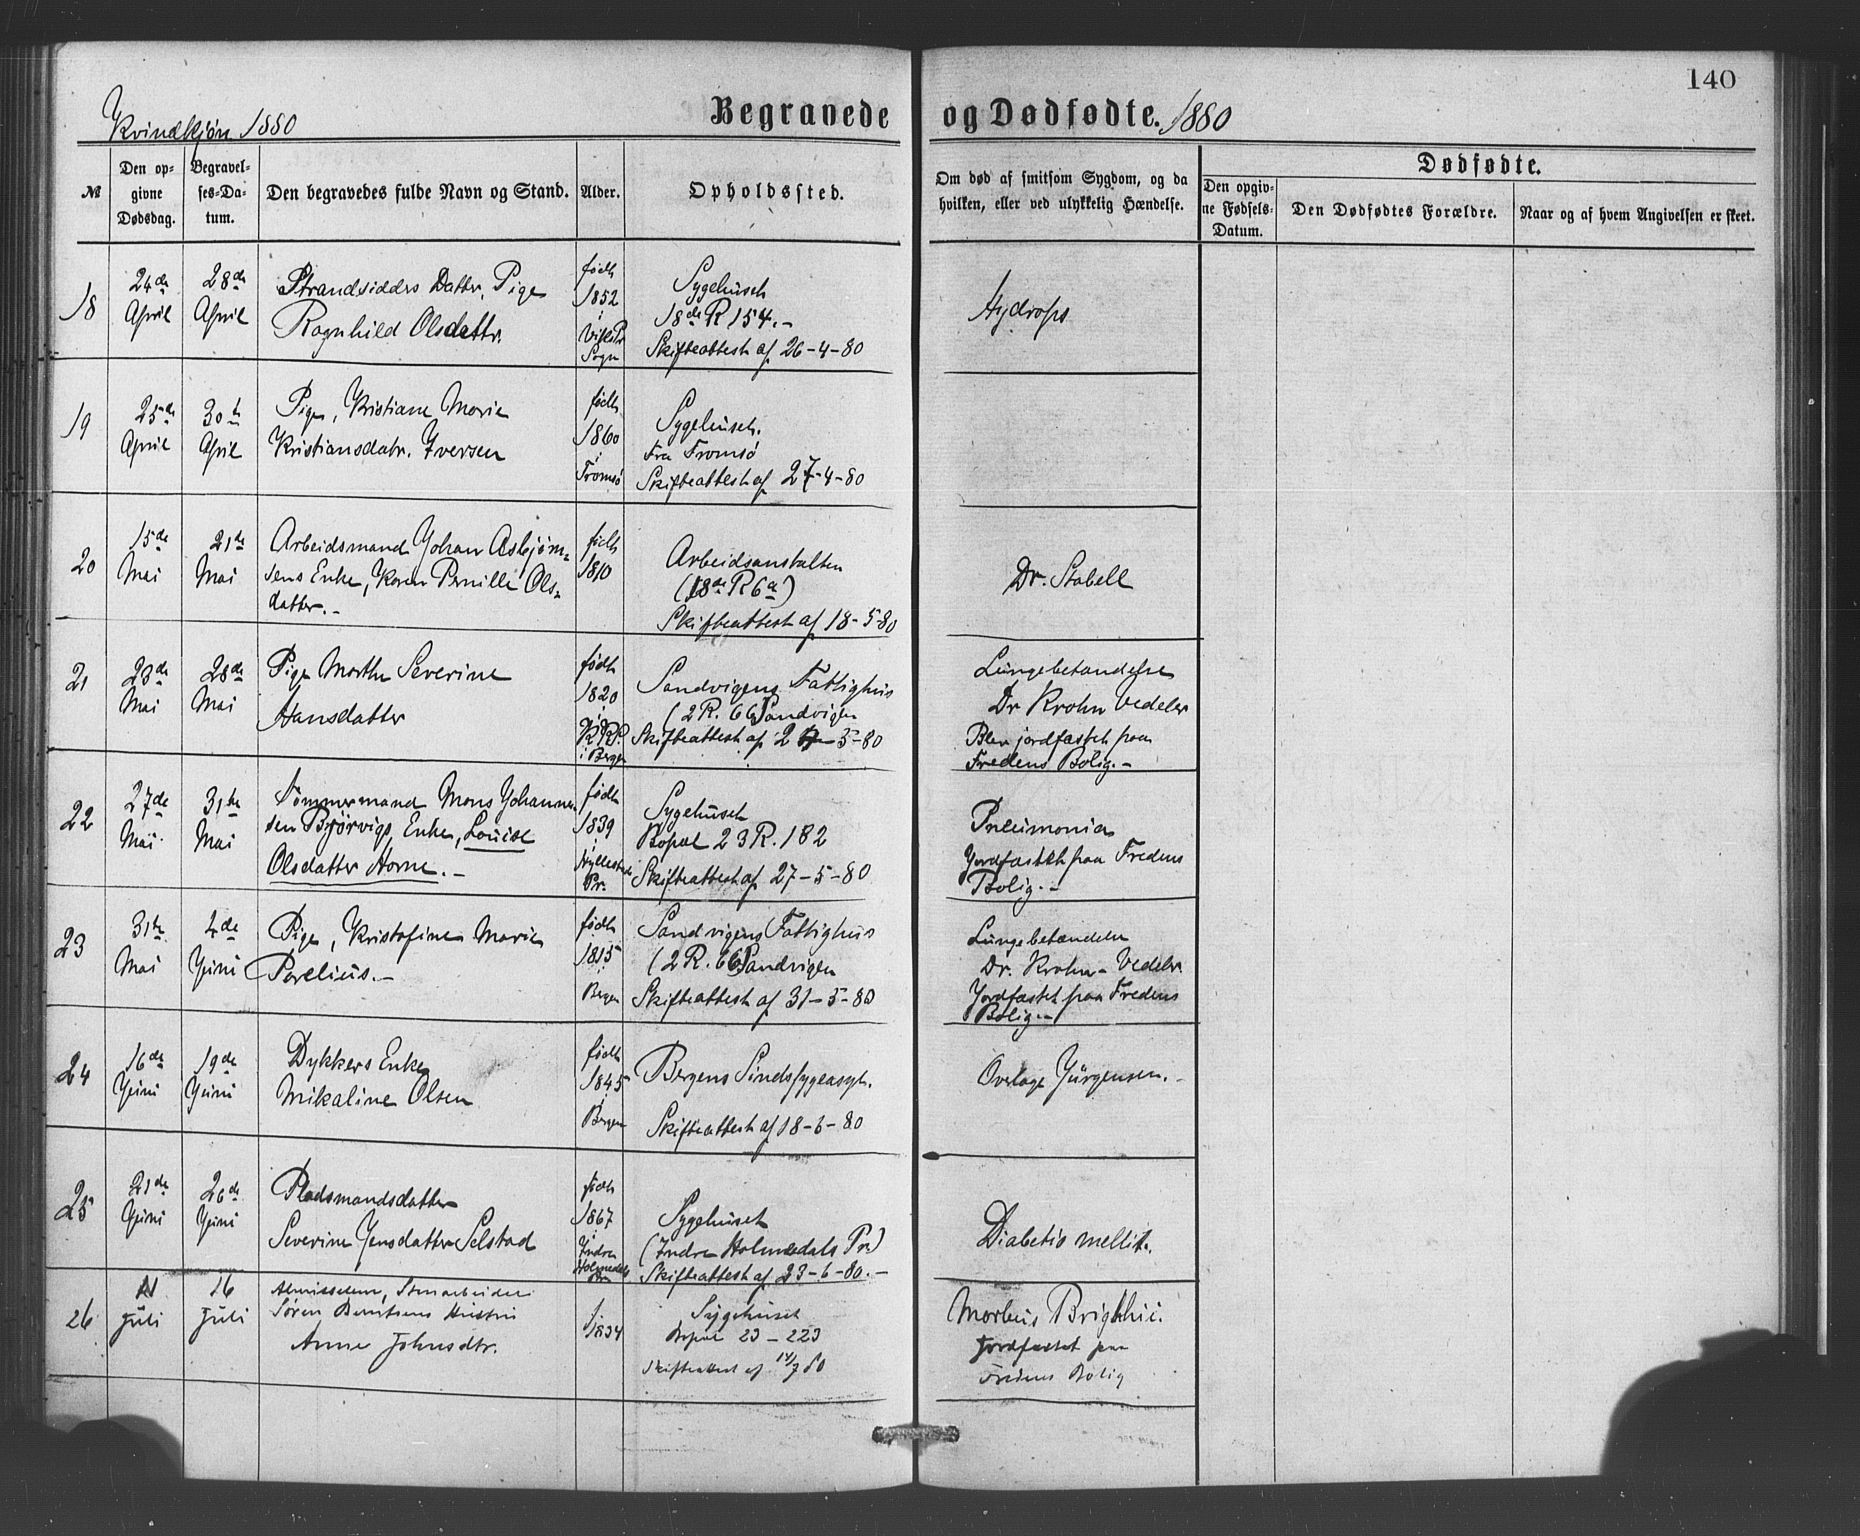 140
Kvindkjøn 1880
Begravede og Dødfødte. 1880
№
Den op-
givne
Dødsdag.
Begravel-
ses-Da-
tum.
Den begravedes fulde Navn og Stand.
Alder.
Opholdssted.
Om død af smitsom Sygdom, og da
hvilken, eller ved ulykkelig Hændelse.
Dødfødte.
Den opgiv-
ne Fødsels-
Datum.
Den Dødfødtes Forældre.
Naar og af hvem Angivelsen er skeet.
18
24de
April
28de
April
Strandsidders Datter, Pige
Ragnhild Olsdattr.
født
1852
i
Viks Pr
Sogn
Sygehuset
18de R 154.-
Skifteattest af 26-4-80
Hydrops
19
25de
April
30te
April
Pige, Kristiane Marie
Kristiansdatr. Iversen
født
1860
i
Tromsø
Sygehuset.
Fra Tromsø
Skifteattest af 27-4-80
20
15de
Mai
21de
Mai
Arbeidsmand Johan Asbjørn-
sens Enke, Karen Pernille Ols-
datter.-
født
1810
Arbeidsanstalten
(18de R 6a)
Skifteattest af 18-5-80
Dr. Stabell
21
23de
Mai
28de
Mai
Pige Marthe Severine
Hansdatter
født
1820
i
K.K.P.
i Bergen
Sandvigens Fattighus
(2 R. 66) Sandvigen
Skifteattest af 2 -5-80
Lungebetændelse
Dr Krohn Vedeler
Blev jordfæstet paa
Fredens Bolig.-
22
27de
Mai
31te
Mai
Tømmermand Mons Johannes-
sen Bjørvigs Enke, Louise
Olsdatter Horne.-
født
1839
i
Hyllestads
Pr.
Sygehuset
Bopæl 23 R. 182
Skifteattest af 27-5-80
Pneumonia
Jordfæstet paa Fredens
Bolig.-
23
31te
Mai
4de
Juni
Pige, Kristofine Marie
Perelius.-
født
1815
i
Bergen
Sandvigens Fattighus
(2 R. 66) Sandvigen
Skifteattest af 31-5-80
Lungebetændelse
Dr. Krohn-Vedeler
Jordfæstet paa Fredens
Bolig.-
24
16de
Juni
19de
Juni
Dykkers Enke
Mikaline Olsen
født
1845
i
Bergen
Bergens Sindssygeasyl.
Skifteattest af 18-6-80
Overlæge Jürgensen.-
25
21de
Juni
26de
Juni
Pladsmandsdatter
Severine Jensdatter Selstad
født
1867
i
Indre
Holmedals
Pr
Sygehuset
(Indre Holmedals Pr)
Skifteattest af 23-6-80.-
Diabetis mellit.
26
Juli
16
Juli
Almisselem, Stenarbeider
Søren Berntsens Hustru
Anne Johnsdtr.
f
1834
Sygehuset
Bopæl 23-223
Skifteattest af 14/7 80
Morbus Brightii.
Jordfæstet paa
Fredens Bolig